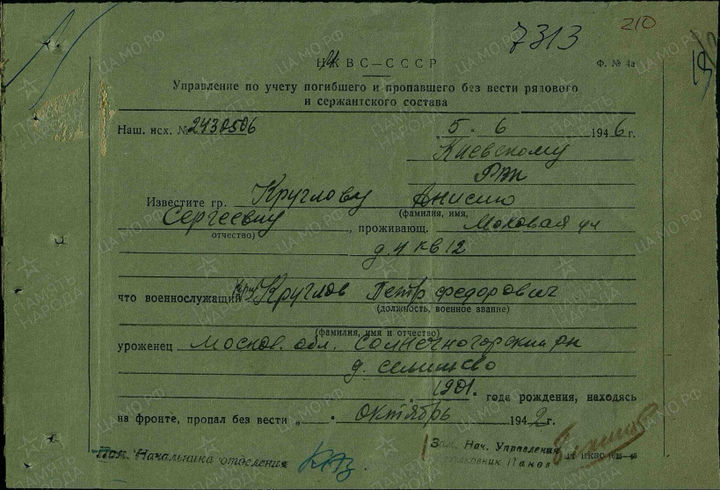 7313
210
НКВС—СССР
Ф. № 4а
Управление по учету погибшего и пропавшего без вести рядового
и сержантского состава
Наш. исх. № 2430506
5. 6 1946 г.
Киевскому
РВК
Известите гр. Круглову Анисию
(фамилия, имя,
Сергеевну, проживающ. Моховая ул
отчество)
д. 4 кв 12
что военнослужащий Круглов Петр Федорович
(должность, военное звание)
(фамилия, имя и отчество)
уроженец Москов. обл. Солнечногорский рн
д. Селищево
1901. года рождения, находясь
на фронте, пропал без вести „ . октябрь 1942 г.
Пом. Начальника отделения
Зам. Нач. Управления
полковник Панов
ПАМЯТЬ НАРОДА
ЦАМО.РФ